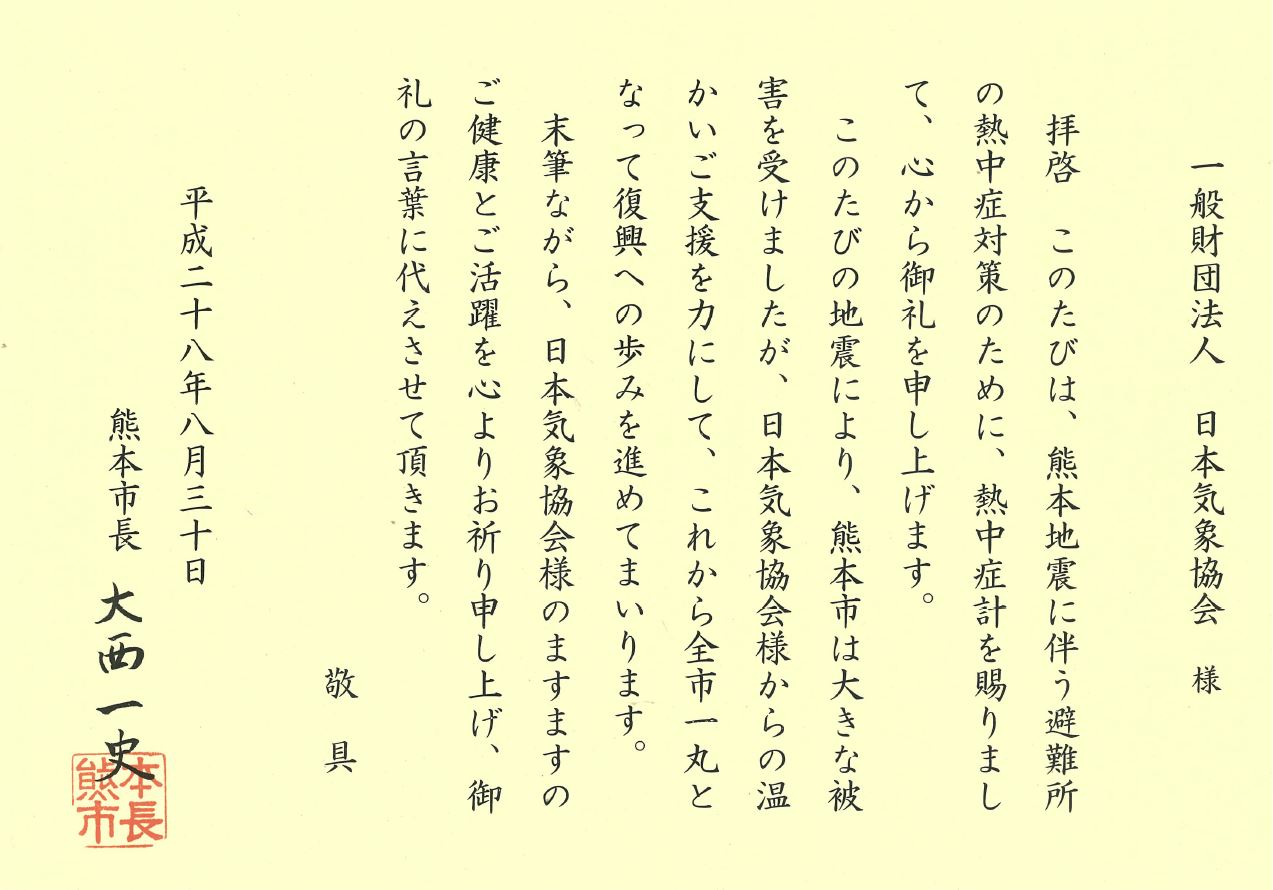 一般財団法人　日本気象協会　様
拝啓　このたびは、熊本地震に伴う避難所
の熱中症対策のために、熱中症計を賜りまし
て、心から御礼を申し上げます。
このたびの地震により、熊本市は大きな被
害を受けましたが、日本気象協会様からの温
かいご支援を力にして、これから全市一丸と
なって復興への歩みを進めてまいります。
末筆ながら、日本気象協会様のますますの
ご健康とご活躍を心よりお祈り申し上げ、御
礼の言葉に代えさせて頂きます。
敬具
平成二十八年八月三十日
熊本市長　大西一史
本長
熊市